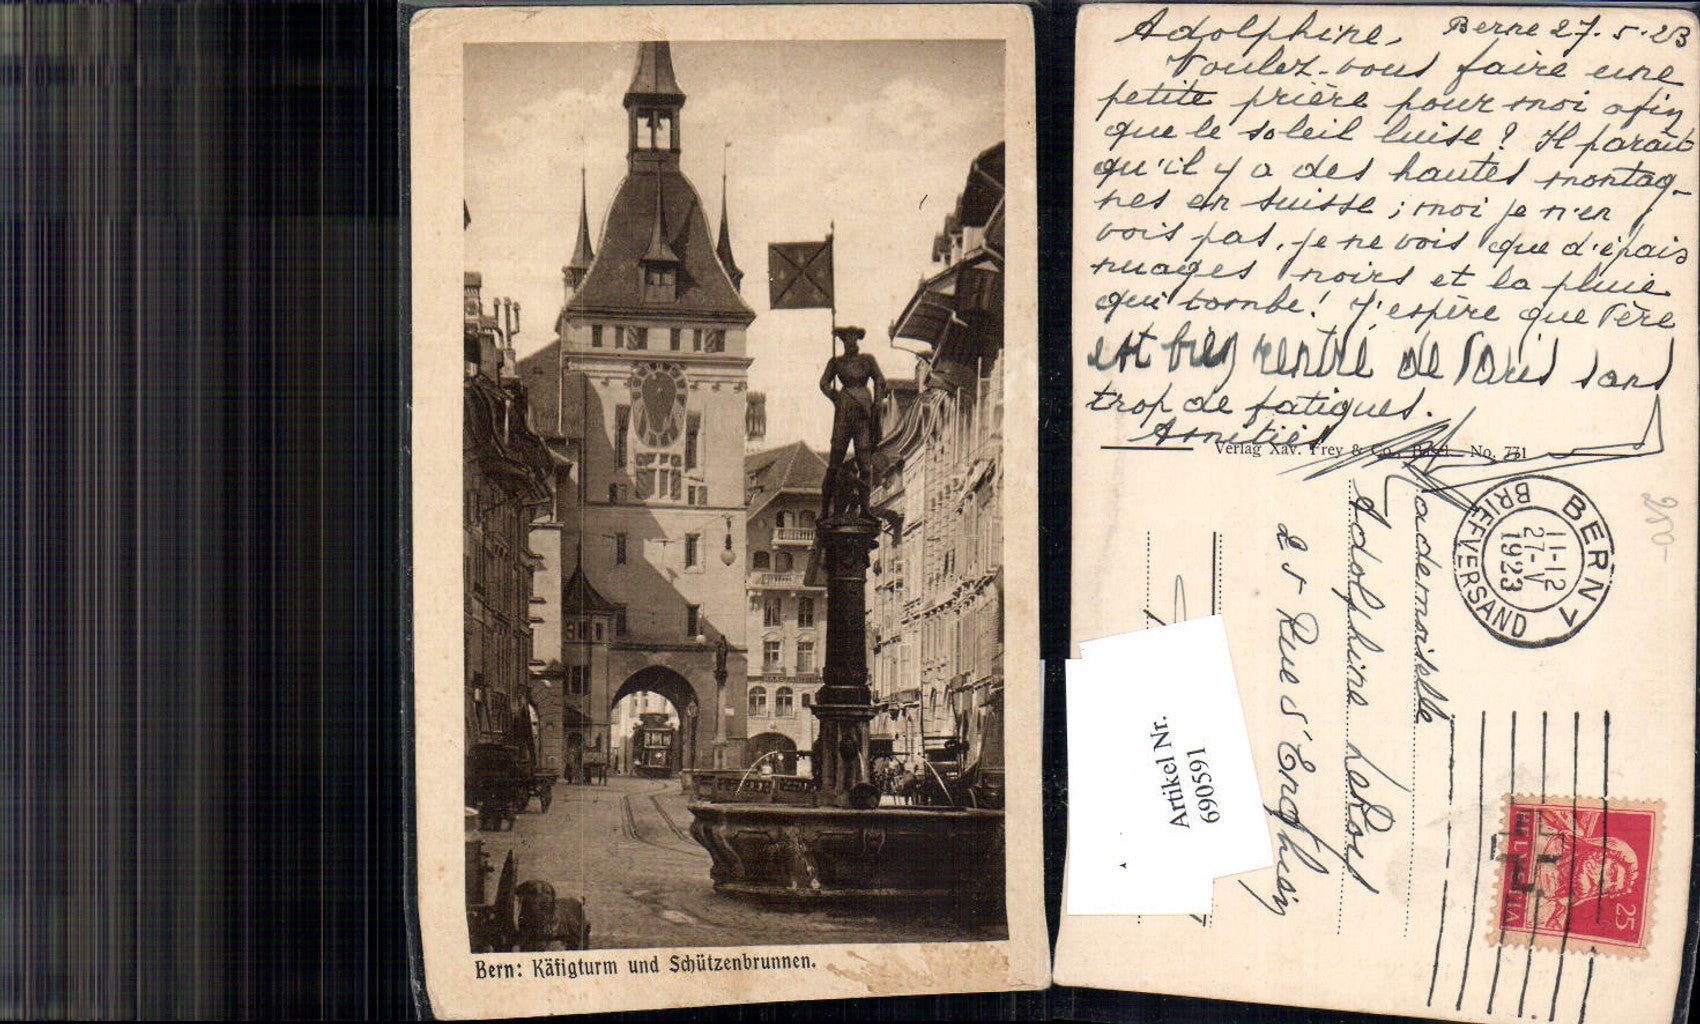 Bern: Käfigturm und Schützenbrunnen.
Adolphine, Berne 27.5.23
Voulez-vous faire une
petite prière pour moi afin
que le soleil luise? Il paraît
qu'il y a des hautes montag-
nes en suisse; moi je n'en
vois pas, je ne vois que d'épais
nuages noirs et la pluie
qui tombe! J'espère que Père
est bien rentré de Paris sans
trop de fatigues.
Amitiés
Verlag Xav. Frey & Co., Basel. No. 771
Mademoiselle
Adolphine
25 Rue d'Enghien
BERN 1
11-12
27-V
1923
BRIEFVERSAND
HELVETIA
25
250-
Artikel Nr.
690591